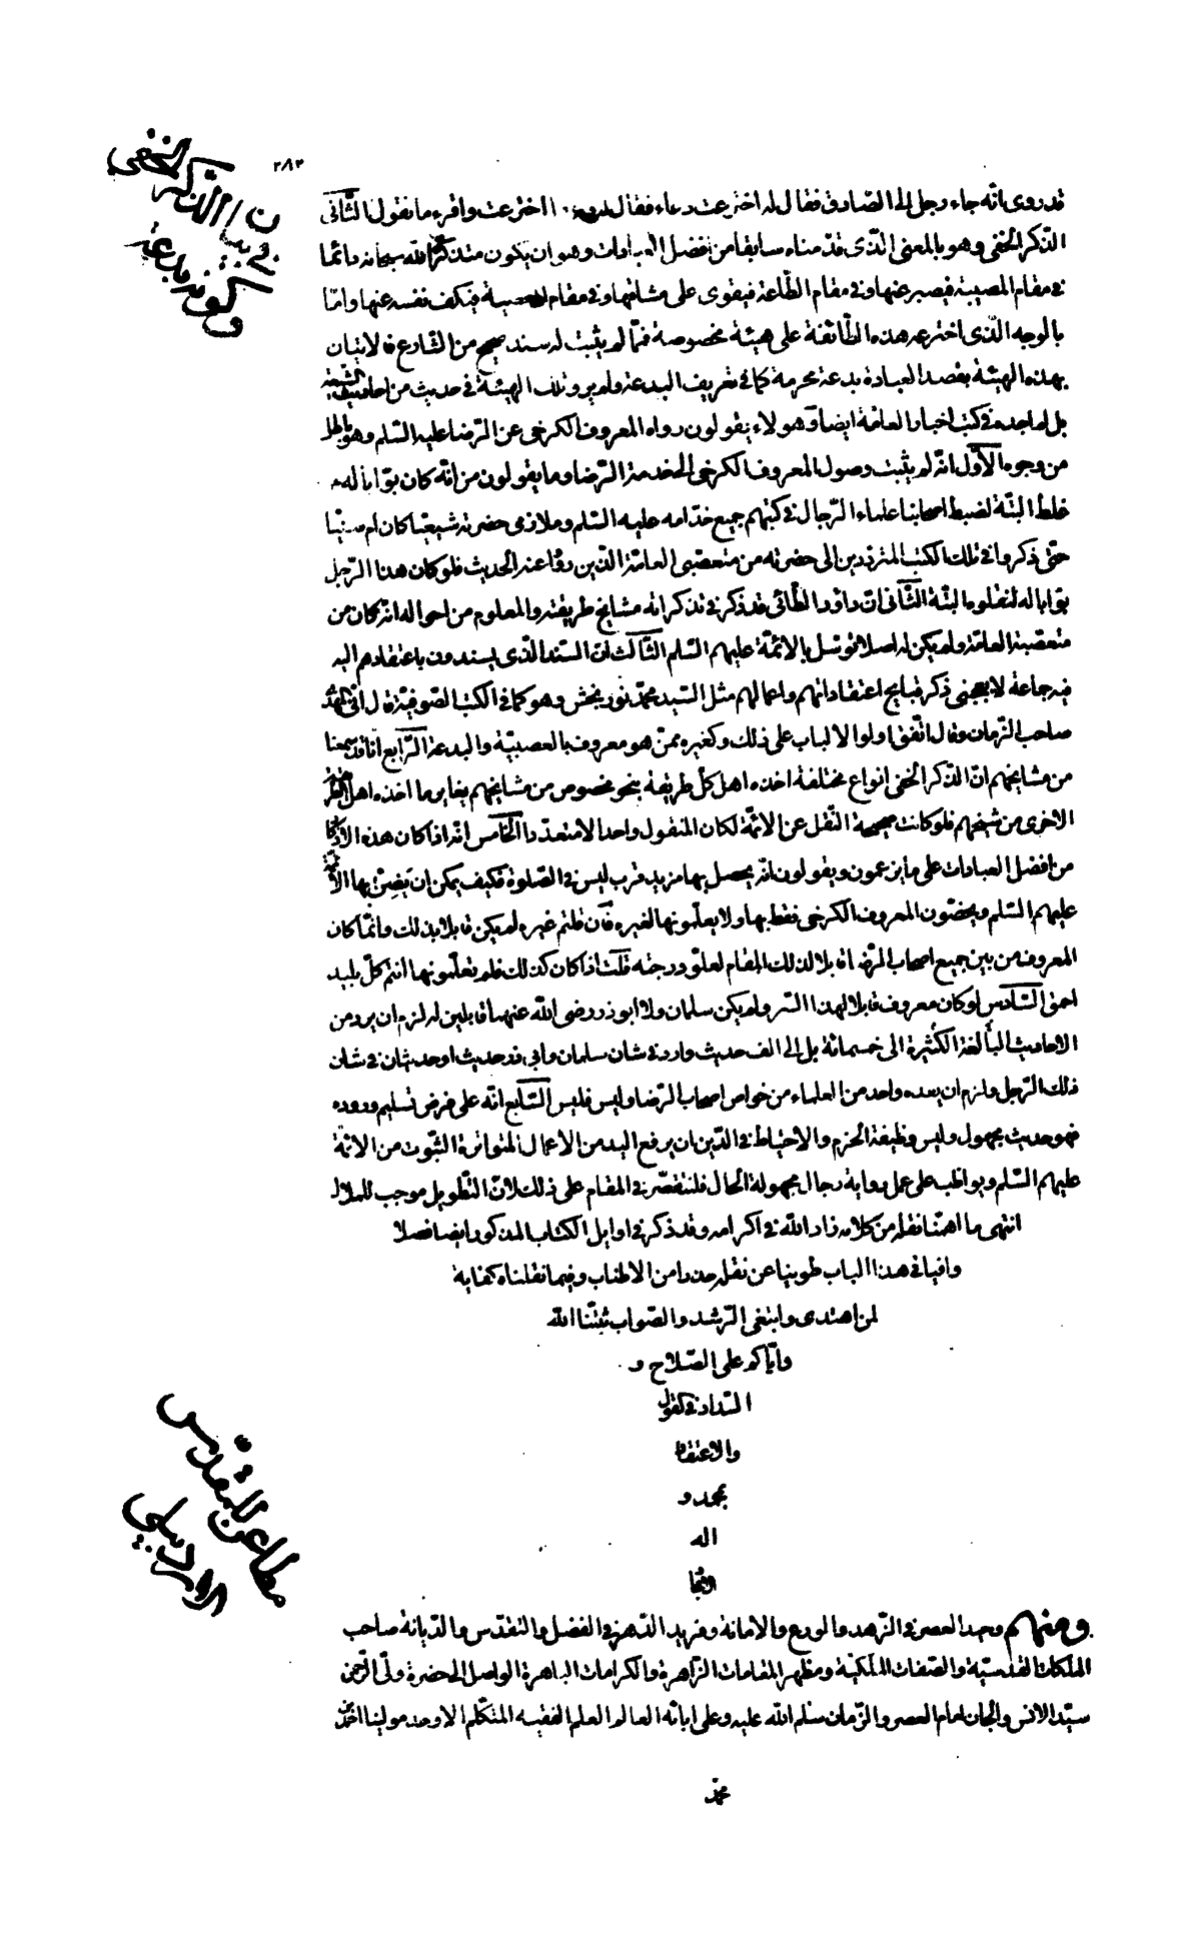 ٢٨٣
في بيان الذكر الخفي
وكونه بدعة
قد روى انّه جاء رجل الى الصّادق فقال له اخترعت دعاء فقال اخترعت واقرء ما نقول الثّانى
الذّكر الخفى وهو بالمعنى الذّى قدّمناه سابقا من افضل العبادات وهو ان يكون متذكّرا لله سبحانه دائما
فى مقام المصيبة فيصبر عنها وفى مقام الطّاعة فيقوى على مشاقها وفى مقام المعصية فيكف نفسه عنها وامّا
بالوجه الذّى اخترعه هذه الطّائفة على هيئة مخصوصة فمّا لم يثبت له سند صحيح من الشّارع فالاتيان
بهذه الهيئة بقصد العبادة بدعة محرمة كما فى تعريف البدعة ولم يرو تلك الهيئة فى حديث من احاديث الشيعة
بل لم اجده فى كتب اخبار العامّة ايضا وهولاء يقولون رواه المعروف الكرخى عن الرّضا عليه السّلم وهو باطل
من وجوه الاوّل انّه لم يثبت وصول المعروف الكرخى الى خدمة الرّضا وما يقولون من انّه كان بوّابا له
غلط البتّة لضبط اصحابنا علماء الرّجال فى كتبهم جميع خدّامه عليه السّلم وملازمى حضرته شيعيّا كان ام سنيّا
حتى ذكروا فى تلك الكتب المتردّدين الى حضرته من متعصبى العامّة الذّين رووا عنه الحديث فلو كان هذا الرّجل
بوّابا له لنقلوه البتّة الثّانى انّ داود الطّائى قد ذكر فى تذكراته مشايخ طريقته والمعلوم من احواله انّه كان من
متعصبة العامّة ولم يكن له اصلا توسّل بالائمّة عليهم السّلم الثّالث انّ السّند الّذى يسندون باعتقادهم اليه
فيه جماعة لا يعجبنى ذكر قبايح اعتقاداتهم واعمالهم مثل السيّد محمّد نور بخش وهو كما فى الكتب الصّوفيّة قال انّى
صاحب الزّمان وقال اتّفق اولوا الالباب على ذلك وكغيره ممّن هو معروف بالعصبيّة والبدعة الرّابع انا قد سمعنا
من مشايخهم انّ الذّكر الخفى انواع مختلفة اخذه اهل كلّ طريقة بنحو مخصوص من مشايخهم يغاير ما اخذه اهل
الاخرى من شيخهم فلو كانت صحيحة النّقل عن الائمّة لكان المنقول واحدا لا متعدّدا الخامس انّه اذا كان هذه الاذكار
من افضل العبادات على ما يزعمون ويقولون انّه يحصل بها مزيد قرب ليس فى الصّلوة فكيف يمكن ان يضنّ بها الائمة
عليهم السّلم ويخصّون المعروف الكرخى فقط بها ولا يعلّمونها لغيره فان قلتم غيره لم يكن قابلا بذلك وانّما كان
المعروف من بين جميع اصحاب الرّضا قابلا لذلك المقام لعلوّ درجته قلت اذا كان كذلك فلم تعلّمونها انتم كلّ بليد
احمق السّادس لو كان معروف قابلا لهذا السّر ولم يكن سلمان ولا ابوذر رضى الله عنهما قابلين له لزم ان يرد من
الاحاديث البالغة الكثيرة الى خمسمائة بل الى الف حديث وارد فى شان سلمان وابى ذر حديث او حديثان فى شان
ذلك الرّجل ولزم ان يعده واحد من العلماء من خواص اصحاب الرّضا وليس فليس السّابع انّه على فرض تسليم وروده
فهو حديث مجهول وليس وظيفة الحزم والاحتياط فى الدّين ان يرفع اليد من الاعمال المتواترة الثّبوت من الائمّة
عليهم السّلم ويواظب على عمل برواية رجال مجهولة الحال فلنقصّر فى المقام على ذلك لانّ التّطويل موجب للملال
انتهى ما اهمّنا نقله من كلامه زاد الله فى اكرامه وقد ذكر فى اوايل الكتاب المذكور ايضا فصلا
وافيا فى هذا الباب طوينا عن نقله حذرا من الاطناب وفيما نقلناه كفاية
لمن اهتدى وابتغى الرّشد والصّواب ثبّتنا الله
وايّاكم على الصّلاح و
السّداد فى القول
والاعتقاد
بمحمد و
اله
الامجاد
مطاعن المقدّس
الاردبيلى
ومنهم وحيد العصر فى الزّهد والورع والامانة وفريد الدّهر فى الفضل والتقدّس والدّيانة صاحب
الملكات القدسيّة والصّفات الملكيّة ومظهر المقامات الزّاهرة والكرامات الباهرة الواصل الى حضرة ولىّ الرّحمن
سيّد الانس والجان امام العصر والزّمان سلم الله عليه وعلى ابائه العالم العلم الفقيه المتكلّم الاوحد مولينا احمد بن
محمّد